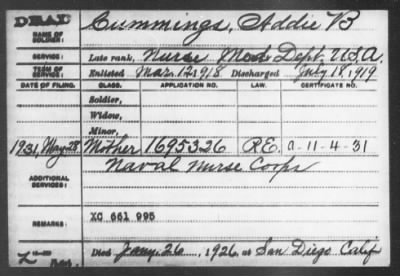 DEAD
NAME OF SOLDIER: Cummings, Addie B
SERVICE: Late rank, Nurse Med Dept. U.S.A.
TERM OF SERVICE: Enlisted Mar. 12, 1918 Discharged July 18, 1919
DATE OF FILING. CLASS. APPLICATION NO. LAW. CERTIFICATE NO.
Soldier,
Widow,
Minor,
1931, May-28 Mother 1695326 R.E. a-11-4-31
ADDITIONAL SERVICES: Naval Nurse Corps
REMARKS: XC 661 995
Died Jany. 26, 1926, at San Diego Calif